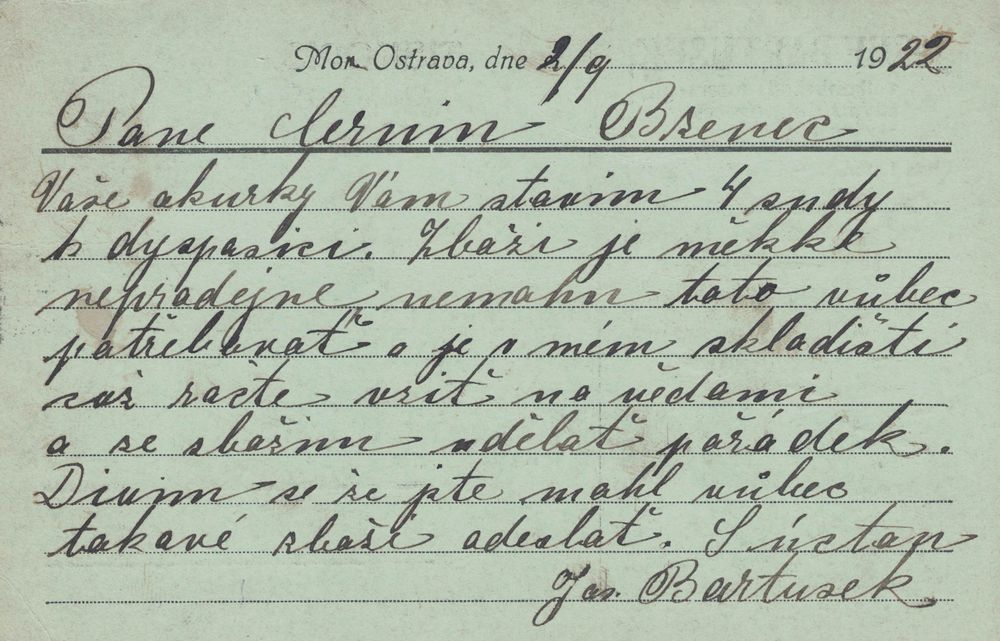 Mor. Ostrava, dne 2/9 1922
Pane Cernin Bzenec
Vaše okurky Vám stavim 4 sudy
k dysposici. Zboži je měkké
neprodejne nemohu toto vůbec
potřebovať a je v mém skladišti
což račte vziť na vědami
a se zbožim udělať pořádek.
Divim se že jste mohl vůbec
takové zboži odeslať. S úctou
Jos. Bartusek